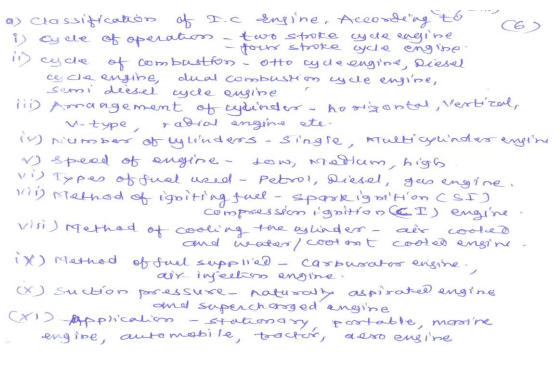 a) Classification of I.C engine, According to (6)
i) cycle of operation - two stroke cycle engine
- four stroke cycle engine.
ii) cycle of combustion - otto cycle engine, Diesel
cycle engine, dual combustion cycle engine,
semi diesel cycle engine
iii) Arrangement of cylinder - horizontal, Vertical,
V-type, radial engine etc.
iv) Number of cylinders - Single, Multicylinder engine
v) Speed of engine - Low, Medium, high.
vi) Types of fuel used - Petrol, Diesel, gas engine.
vii) Method of igniting fuel - spark ignition (SI)
compression ignition (CI) engine.
viii) Method of cooling the cylinder - air cooled
and water/coolant cooled engine.
ix) Method of fuel supplied - Carburator engine,
air injection engine.
(x) Suction pressure - naturally aspirated engine
and supercharged engine
(xi) Application - stationary, portable, marine
engine, automobile, tractor, aero engine